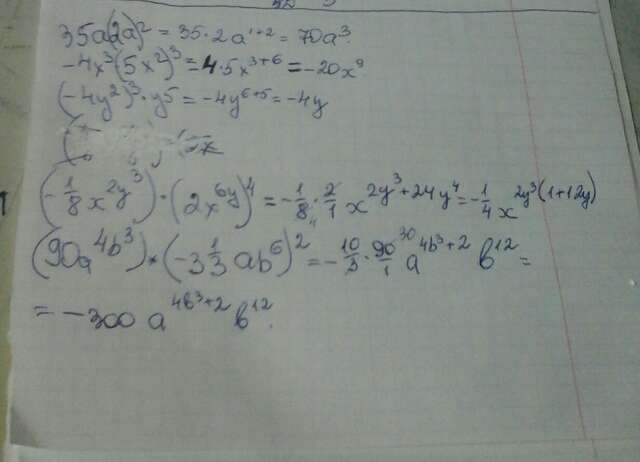 35a(2a)² = 35·2a¹⁺² = 70a³.
-4x³(5x²)³ = 4·5x³⁺⁶ = -20x⁹
(-4y²)³·y5 = -4y⁶⁺⁵ = -4y
(-1/8 x^2y^3)·(2x^6y)^4 = -1/8·2/1 x^2y^3+24y^4 = -1/4 x^2y^3(1+12y)
(90a^4b^3)·(-3 1/3 ab^6)^2 = -10/3·90/1 ^30 a^4b^3+2 b^12 =
= -300 a^4b^3+2 b^12.